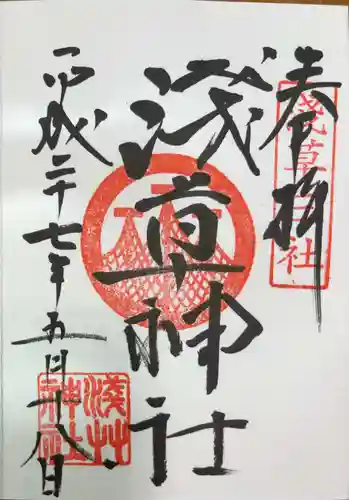 奉拝
淺草神社
浅草神社
平成二十七年五月十八日
淺草神社